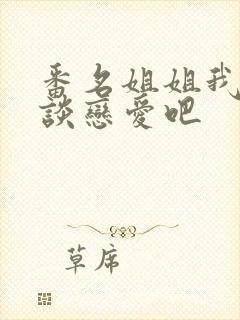 番名姐姐我
談戀愛吧
草席